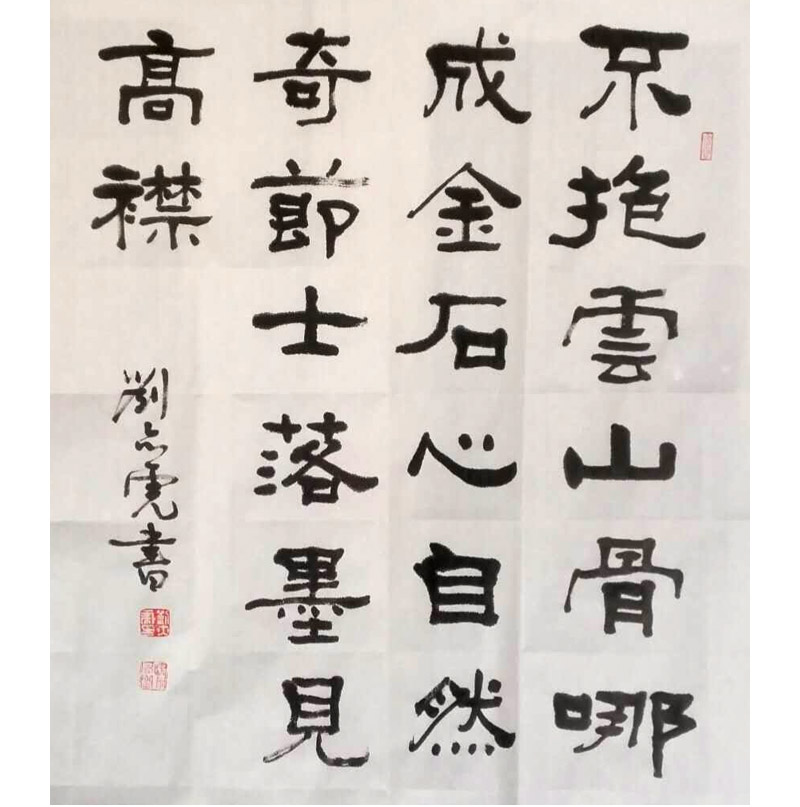 不抱雲山骨哪
成金石心自然
奇節士落墨見
高襟
劉志虎書